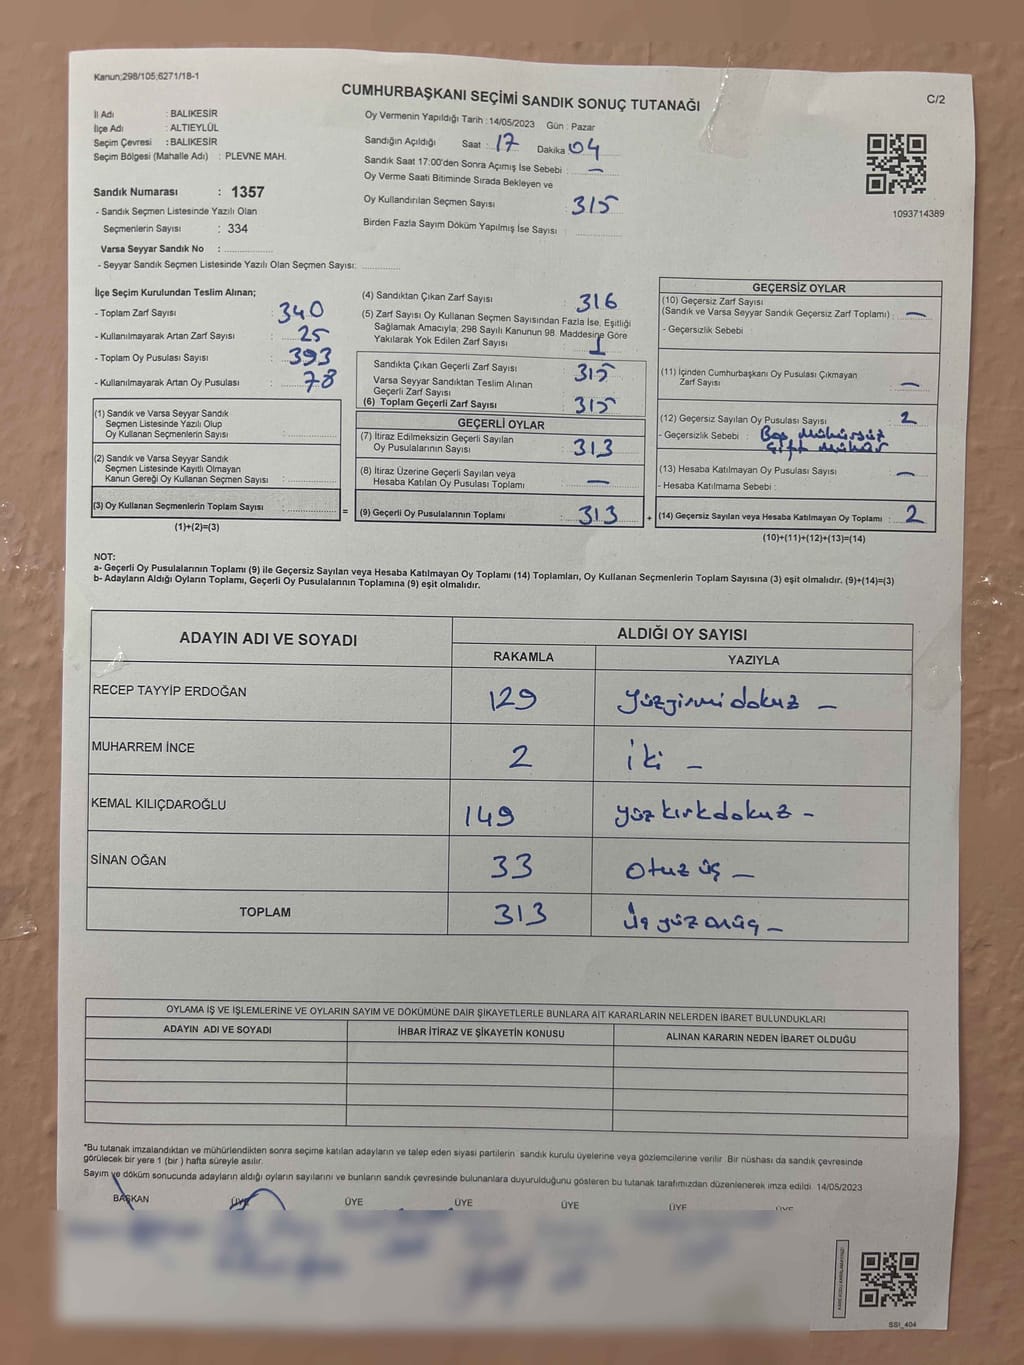 Kanun;298/105;6271/18-1
CUMHURBAŞKANI SEÇİMİ SANDIK SONUÇ TUTANAĞI
C/2
İl Adı : BALIKESİR
İlçe Adı : ALTIEYLÜL
Seçim Çevresi : BALIKESİR
Seçim Bölgesi (Mahalle Adı) : PLEVNE MAH.
Sandık Numarası : 1357
- Sandık Seçmen Listesinde Yazılı Olan
Seçmenlerin Sayısı : 334
Varsa Seyyar Sandık No :
- Seyyar Sandık Seçmen Listesinde Yazılı Olan Seçmen Sayısı:
Oy Vermenin Yapıldığı Tarih : 14/05/2023 Gün : Pazar
Sandığın Açıldığı Saat : 17 Dakika 04
Sandık Saat 17:00'den Sonra Açımış İse Sebebi : —
Oy Verme Saati Bitiminde Sırada Bekleyen ve
Oy Kullandırılan Seçmen Sayısı 315
Birden Fazla Sayım Döküm Yapılmış İse Sayısı :
1093714389
İlçe Seçim Kurulundan Teslim Alınan;
- Toplam Zarf Sayısı : 340
- Kullanılmayarak Artan Zarf Sayısı : 25
- Toplam Oy Pusulası Sayısı : 393
- Kullanılmayarak Artan Oy Pusulası : 78
(1) Sandık ve Varsa Seyyar Sandık
Seçmen Listesinde Yazılı Olup
Oy Kullanan Seçmenlerin Sayısı :
(2) Sandık ve Varsa Seyyar Sandık
Seçmen Listesinde Kayıtlı Olmayan
Kanun Gereği Oy Kullanan Seçmen Sayısı :
(3) Oy Kullanan Seçmenlerin Toplam Sayısı :
(1)+(2)=(3)
=
(4) Sandıktan Çıkan Zarf Sayısı : 316
(5) Zarf Sayısı Oy Kullanan Seçmen Sayısından Fazla İse, Eşitliği
Sağlamak Amacıyla; 298 Sayılı Kanunun 98. Maddesine Göre
Yakılarak Yok Edilen Zarf Sayısı : 1
Sandıkta Çıkan Geçerli Zarf Sayısı : 315
Varsa Seyyar Sandıktan Teslim Alınan
Geçerli Zarf Sayısı :
(6) Toplam Geçerli Zarf Sayısı : 315
GEÇERLİ OYLAR
(7) İtiraz Edilmeksizin Geçerli Sayılan
Oy Pusulalarının Sayısı : 313
(8) İtiraz Üzerine Geçerli Sayılan veya
Hesaba Katılan Oy Pusulası Toplamı : —
(9) Geçerli Oy Pusulalarının Toplamı : 313
+
GEÇERSİZ OYLAR
(10) Geçersiz Zarf Sayısı
(Sandık ve Varsa Seyyar Sandık Geçersiz Zarf Toplamı) : —
- Geçersizlik Sebebi :
(11) İçinden Cumhurbaşkanı Oy Pusulası Çıkmayan
Zarf Sayısı : —
(12) Geçersiz Sayılan Oy Pusulası Sayısı : 2
- Geçersizlik Sebebi : Boş Mühürsüz
Çift Mühür
(13) Hesaba Katılmayan Oy Pusulası Sayısı : —
- Hesaba Katılmama Sebebi :
(14) Geçersiz Sayılan veya Hesaba Katılmayan Oy Toplamı : 2
(10)+(11)+(12)+(13)=(14)
NOT:
a- Geçerli Oy Pusulalarının Toplamı (9) ile Geçersiz Sayılan veya Hesaba Katılmayan Oy Toplamı (14) Toplamları, Oy Kullanan Seçmenlerin Toplam Sayısına (3) eşit olmalıdır. (9)+(14)=(3)
b- Adayların Aldığı Oyların Toplamı, Geçerli Oy Pusulalarının Toplamına (9) eşit olmalıdır.
ADAYIN ADI VE SOYADI
ALDIĞI OY SAYISI
RAKAMLA YAZIYLA
RECEP TAYYİP ERDOĞAN 129 yüzyirmi dokuz —
MUHARREM İNCE 2 iki —
KEMAL KILIÇDAROĞLU 149 yüz kırkdokuz -
SİNAN OĞAN 33 otuz üç —
TOPLAM 313 Üç yüz onüç —
OYLAMA İŞ VE İŞLEMLERİNE VE OYLARIN SAYIM VE DÖKÜMÜNE DAİR ŞİKAYETLERLE BUNLARA AİT KARARLARIN NELERDEN İBARET BULUNDUKLARI
ADAYIN ADI VE SOYADI İHBAR İTİRAZ VE ŞİKAYETİN KONUSU ALINAN KARARIN NEDEN İBARET OLDUĞU
*Bu tutanak imzalandıktan ve mühürlendikten sonra seçime katılan adayların ve talep eden siyasi partilerin sandık kurulu üyelerine veya gözlemcilerine verilir. Bir nüshası da sandık çevresinde
görülecek bir yere 1 (bir) hafta süreyle asılır.
Sayım ve döküm sonucunda adayların aldığı oyların sayılarını ve bunların sandık çevresinde bulunanlara duyurulduğunu gösteren bu tutanak tarafımızdan düzenlenerek imza edildi. 14/05/2023
BAŞKAN ÜYE ÜYE ÜYE ÜYE ÜYE ÜYE
SSI_404